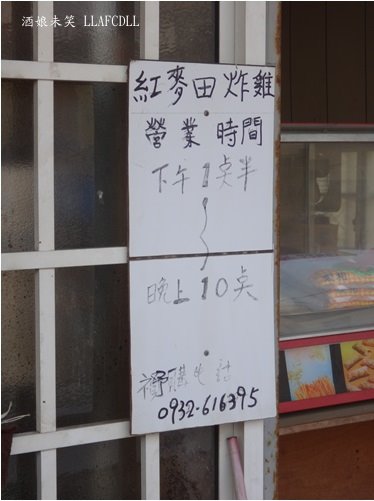 酒娘未笑 LLAFCDLL
紅麥田炸雞
營業時間
下午1点半
~
晚上10点
預購电話
0932-616395